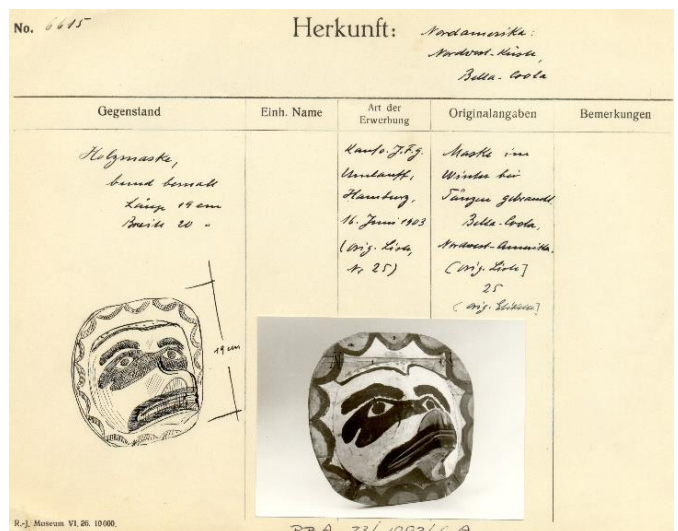 No. 6615
Herkunft: Nordamerika:
Nordwest-Küste,
Bella-Coola
Gegenstand
Einh. Name
Art der
Erwerbung
Originalangaben
Bemerkungen
Holzmaske,
bund bemalt
Länge 19 cm
Breite 20 "
Kauf v. J.F.G.
Umlauff,
Hamburg,
16. Juni 1903
(orig. Liste,
Nr 25)
Maske im
Winter bei
Tänzen gebraucht.
Bella-Coola,
Nordwest-Amerika.
(orig. Liste]
25
(orig.
19 cm
R.-J. Museum VI, 26. 10000.